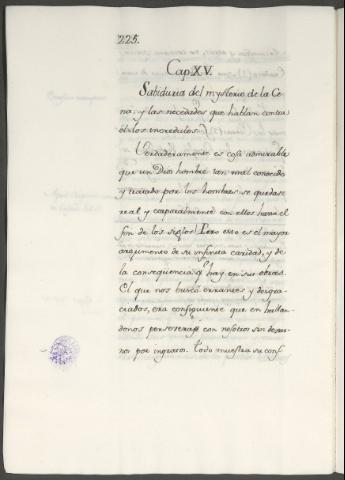 225.
Cap. XV.
Sabiduria del mysterio de la Ce-
na, y las necedades que hablan contra
el los incredulos.
Verdaderamente es cosa admirable
que un Dios hombre tan mal conocido
y tratado por los hombres se quedase
real y corporalmente con ellos hasta el
fin de los siglos! Pero esto es el mayor
argumento de su infinita caridad, y de
la consequencia q.e hay en sus obras.
El que nos buscó errantes y desgra-
ciados, era consiguiente que en hallan-
donos perseverase con nosotros sin dexar-
nos por ingratos. Todo muestra su conf